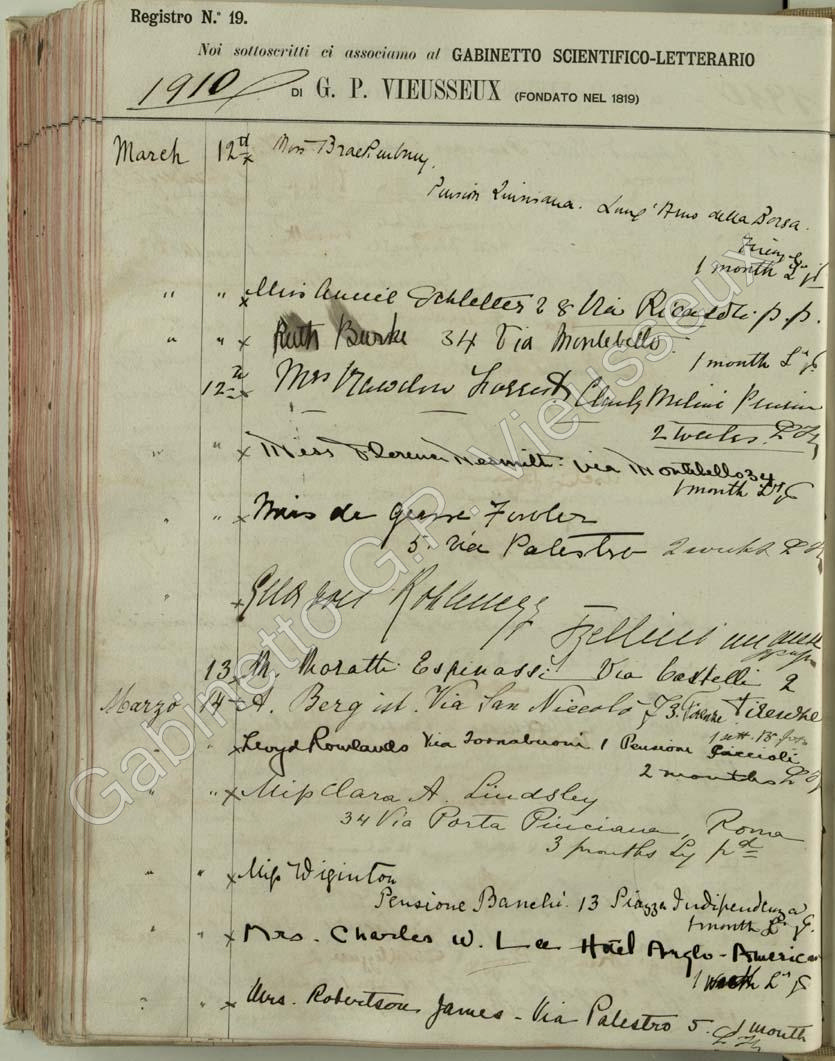 Registro N.º 19.
Noi sottoscritti ci associamo al GABINETTO SCIENTIFICO-LETTERARIO
1910 DI G. P. VIEUSSEUX (FONDATO NEL 1819)
March 12th x Brackenbury
Pension Quisisana. Lung'Arno della Borsa.
Firenze
1 month
" " x Miss Annie Schletter 28 Via Ricasoli p.p.
" " x Ruth Burke 34 Via Montebello.
1 month
12 x Mrs Rawdon Pension
2 weeks
" " x Miss Florence Nesmith. Via Montebello 34
1 month
" " x Miss de George Fowler
5. Via Palestro 2 weeks
x
13 x M. Moratti Espinassi Via Castelli 2
Marzo 14 A. Berg Via San Niccolò Firenze
" x Lloyd Rowlands Via Tornabuoni 1 Pensione Piccioli
2 months
" " x Miss Clara A. Lindsley
34 Via Porta Pinciana, Roma
3 months pd
" " x Miss Wiginton
Pensione Banchi. 13 Piazza Indipendenza
1 month
" " x Mrs. Charles W. Lee Hotel Anglo-American
1
" " x Mrs. Robertson James - Via Palestro 5. 1 month
Gabinetto G.P. Vieusseux